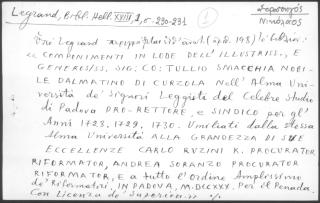 Legrand, Bibl. Hell. XVIII, 1, σ. 230-231
①
Ὁ Legrand
COMPONIMENTI IN LODE DELL' ILLUSTRISS., E
GENEROSISS. SIG: CO: TULLIO SMACCHIA NOBI-
LE DALMATINO DI CURZOLA Nell' Alma Uni-
versità de' Signori Leggisti del Celebre Studio
di Padova PRO-RETTORE, e SINDICO per gl'
Anni 1723. 1729, 1730. Umiliati dalla stessa
Alma Università ALLA GRANDEZZA DI SUE
ECCELLENZE CARLO RUZINI K. PROCURATOR
RIFORMATOR, ANDREA SORANZO PROCURATOR
RIFORMATOR, E a tutto l'Ordine Amplissimo
de' Riformatori, IN PADOVA, M.DCCXXX. Per il Penada.
Con Licenza de' Superiori